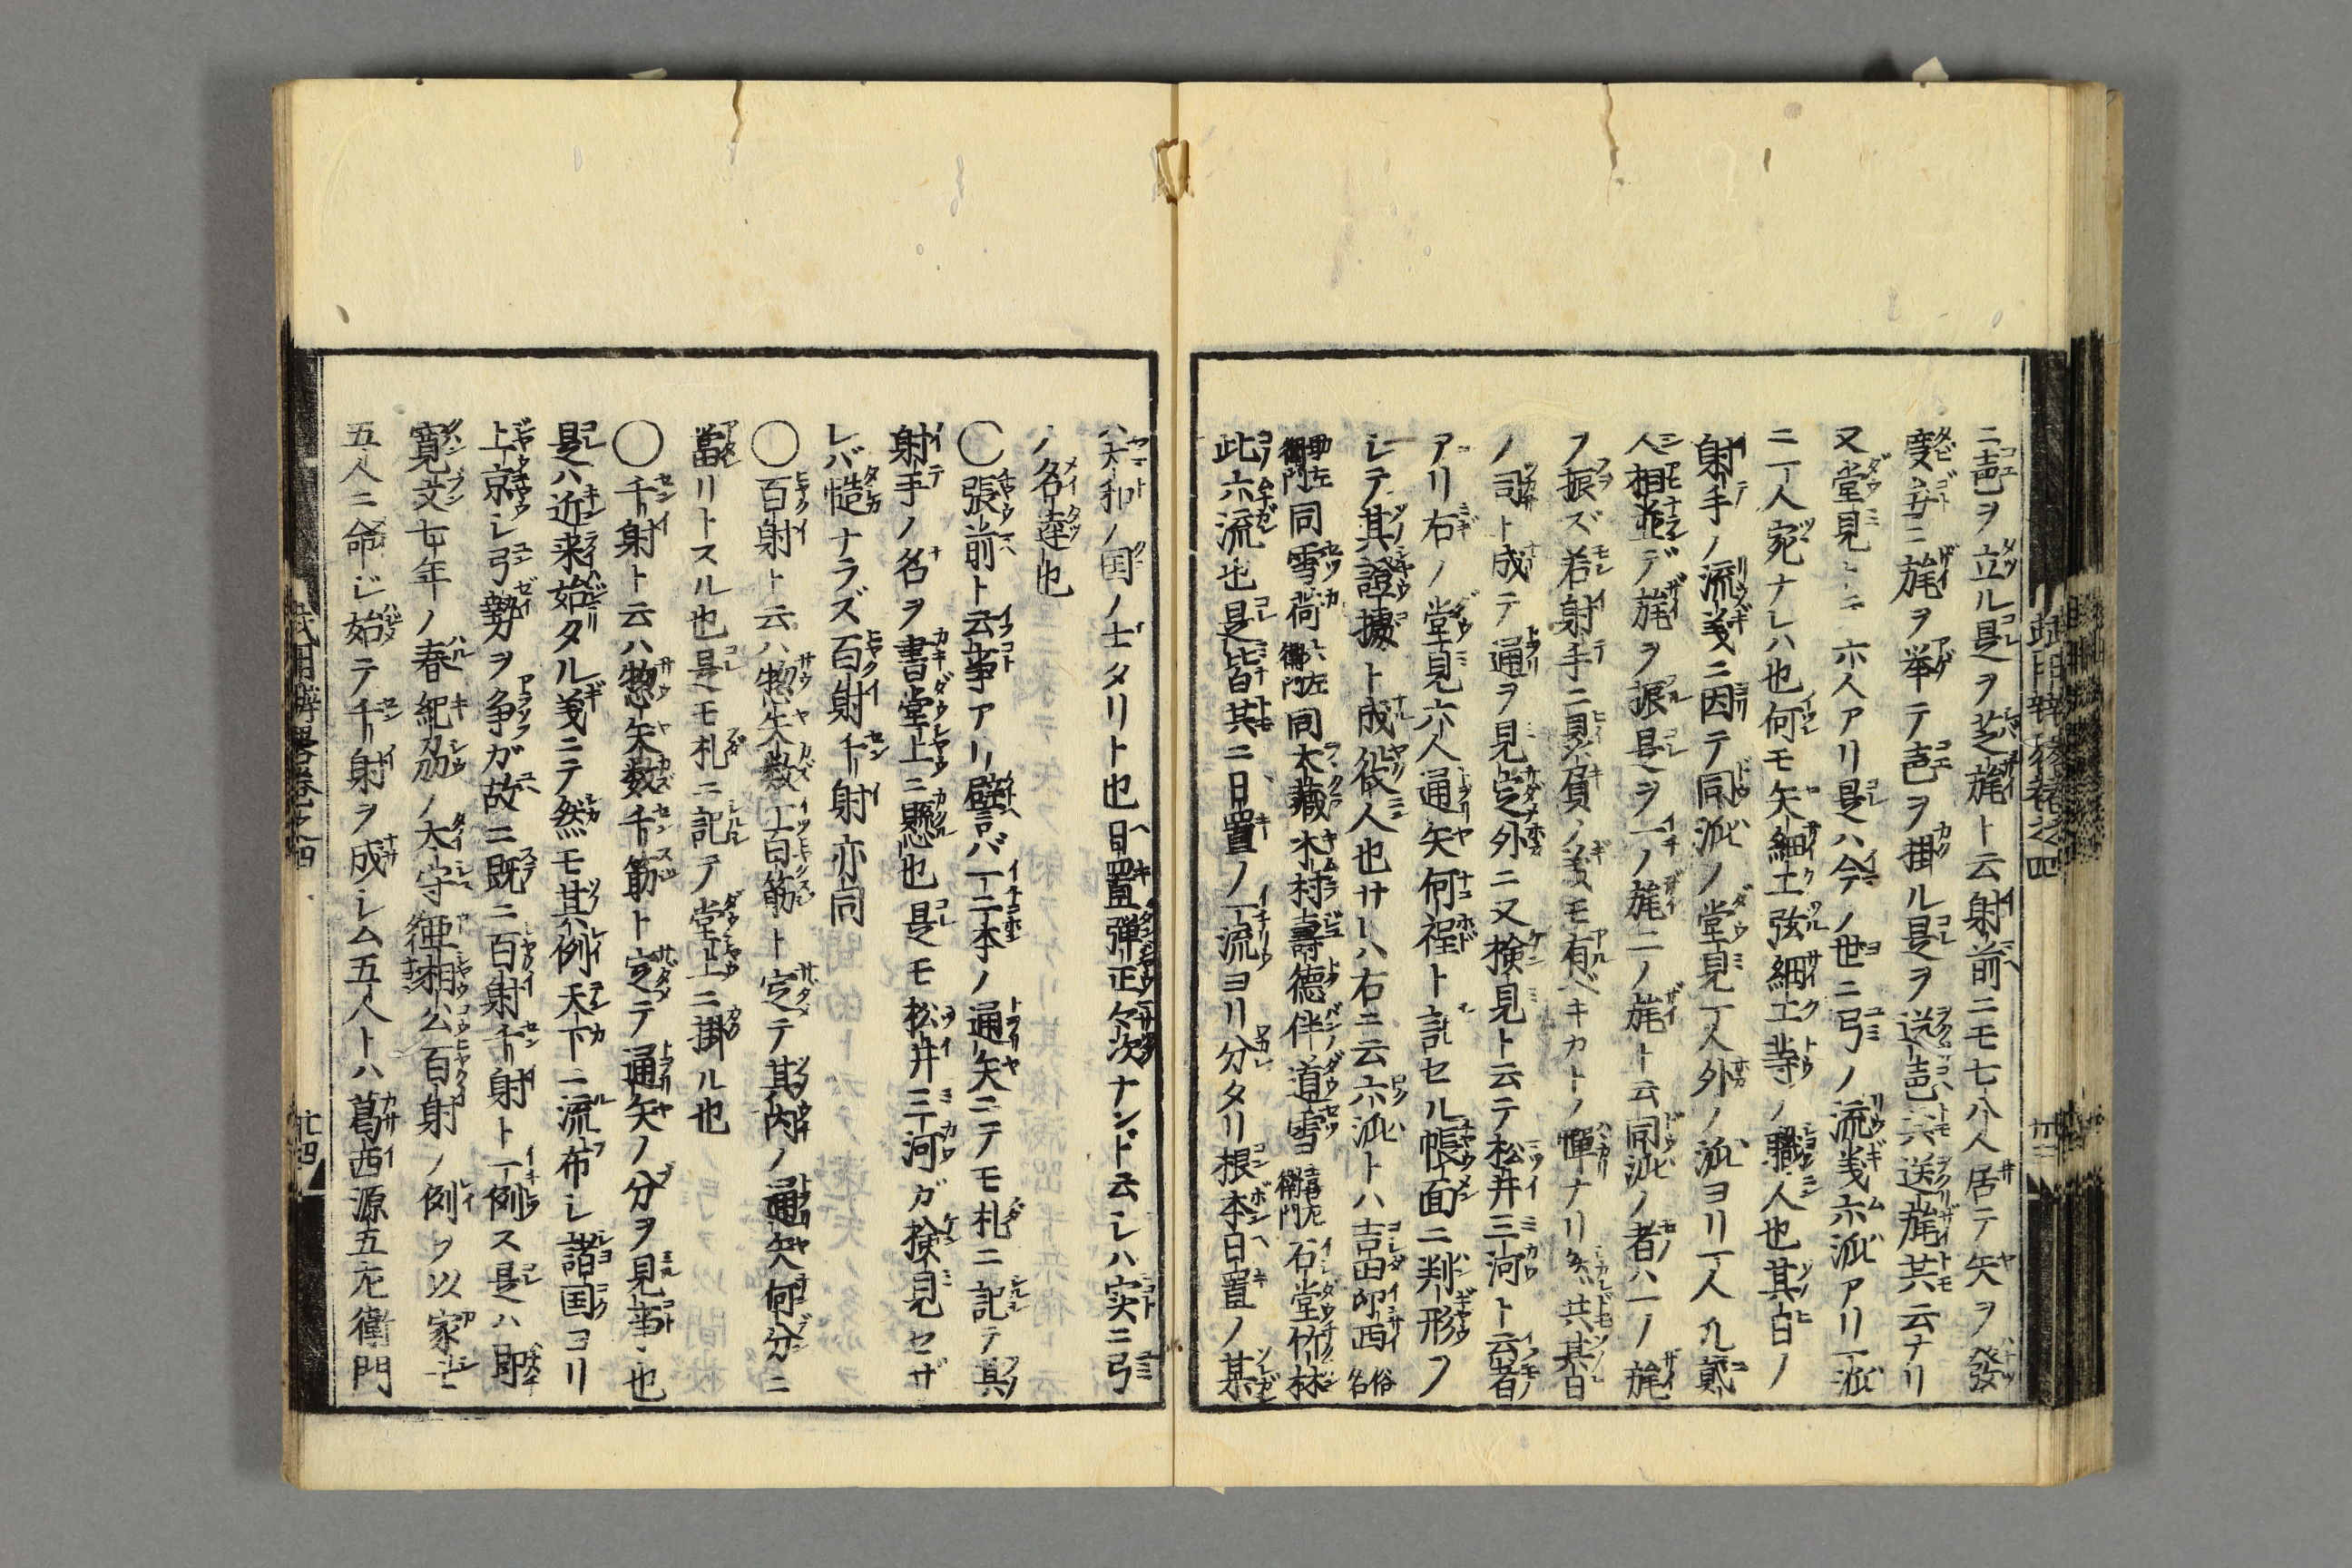 ニ声ヲ立ル是ヲ芝旄ト云射前ニモ七八人居テ矢ヲ發
度毎ニ旄ヲ挙テ声ヲ掛ル是ヲ送声共送旄共云ナリ
又堂見トニ六人アリ是ハ今ノ世ニ弓ノ流義六派アリ一派
ニ一人宛ナレハ也何モ矢細工弦細工等ノ職人也其日ノ
射手ノ流義ニ因テ同派ノ堂見一人外ノ派ヨリ一人凡貳
人相並デ旄ヲ振是ヲ一ノ旄二ノ旄ト云同派ノ者ハ一ノ旄
ヲ振ズ若射手ニ贔屓ノ義モ有ベキカトノ憚ナリ矣共其日
ノ司ト成テ通ヲ見定外ニ又検見ト云テ松井三河ト云者
アリ右ノ堂見六人通矢何程ト記セル帳面ニ判形ヲ
シテ其證據ト成役人也サレハ右ニ云六派トハ吉田印西俗名
助左衛門同雪荷六左衛門同大藏木村壽德伴道雪喜左衛門石堂竹林
此六流也是皆其ニ日置ノ一流ヨリ分タリ根本日置ノ某
ハ大和ノ国ノ士タリト也日置弾正左次ナンド云シハ実ニ弓
ノ名達也
〇張前ト云事アリ譬バ一二本ノ通矢ニテモ札ニ記テ其
射手ノ名ヲ書堂上ニ懸也是モ松井三河ガ検見セザ
レバ慥ナラズ百射千射亦同
〇百射ト云ハ惣矢数百筋ト定テ其内ノ通矢何分ニ
當リトスル也是モ札ニ記テ堂上ニ掛ル也
〇千射ト云ハ惣矢数千筋ト定テ通矢ノ分ヲ見事也
是ハ近来始タル義ニテ然モ其例天下ニ流布シ諸国ヨリ
上京シ弓勢ヲ争ガ故ニ既ニ百射千射ト一例ス是ハ即
寛文七年ノ春紀刕ノ大守亜相公百射ノ例ヲ以家士
五人ニ命ジ始テ千射ヲ成シム五人トハ葛西源五左衛門
武用辨畧巻之四
廿四